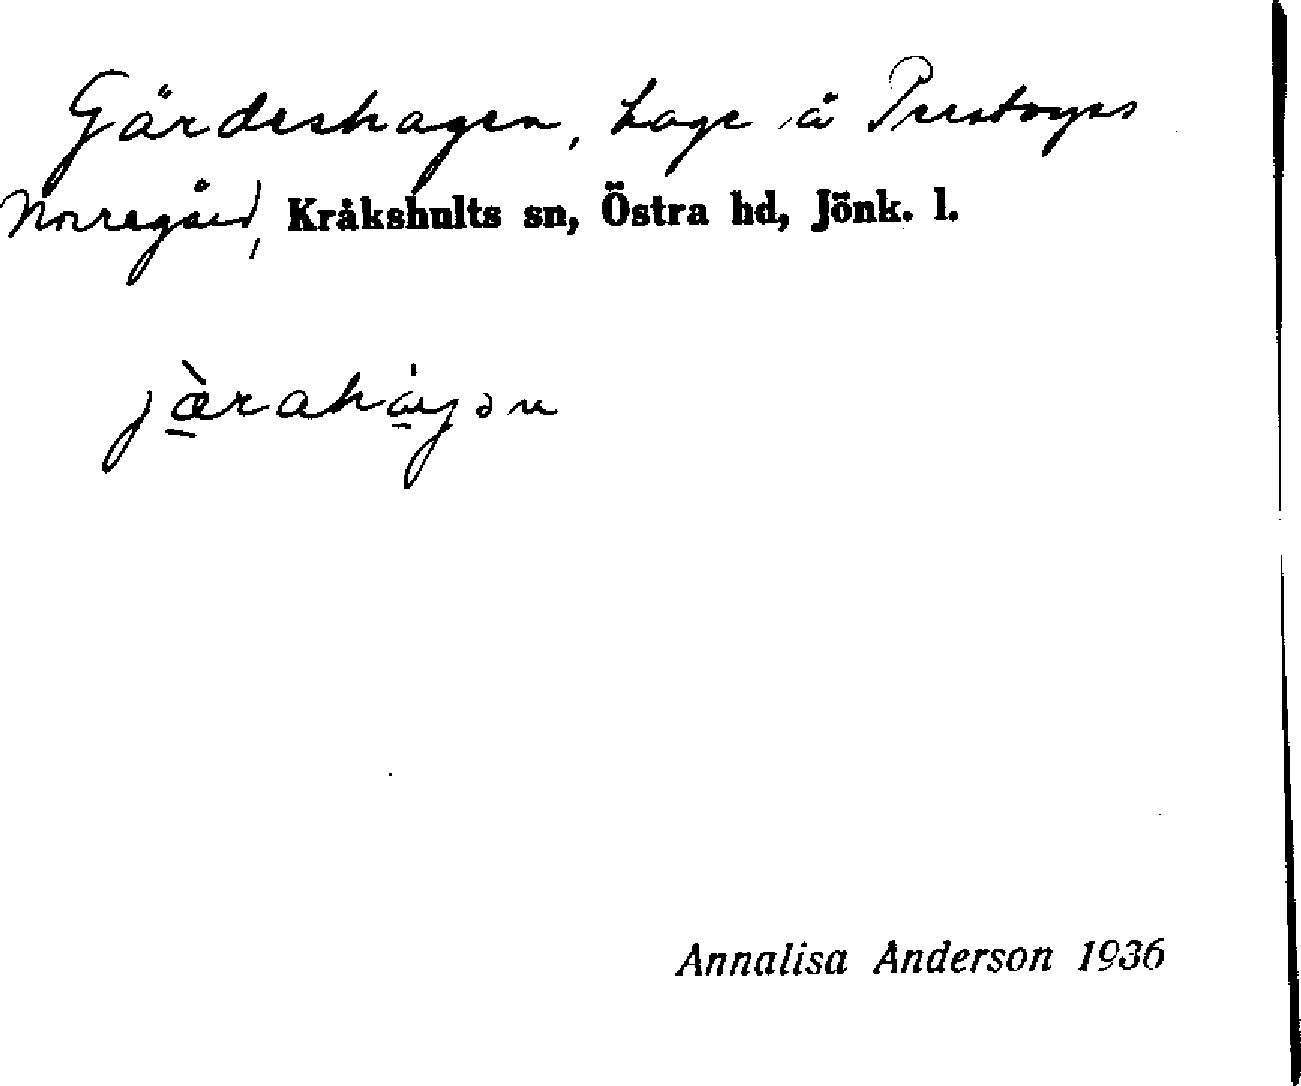 Gärdeshagen, hage å Perstorps
Norregård, Kråkshults sn, Östra hd, Jönk. l.
Annalisa Anderson 1936